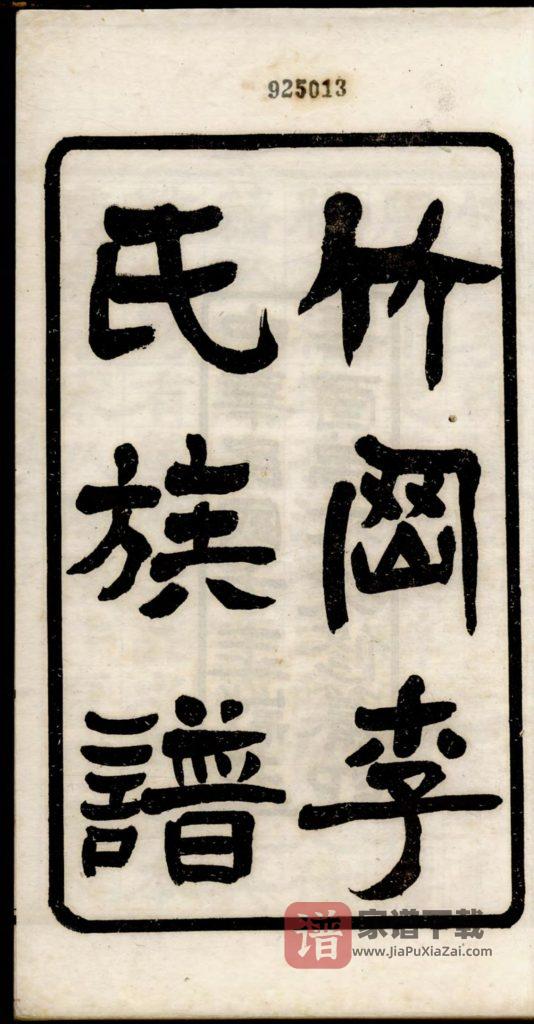 925013
竹岡李
氏族譜
谱 家谱下载
www.JiaPuXiaZai.com